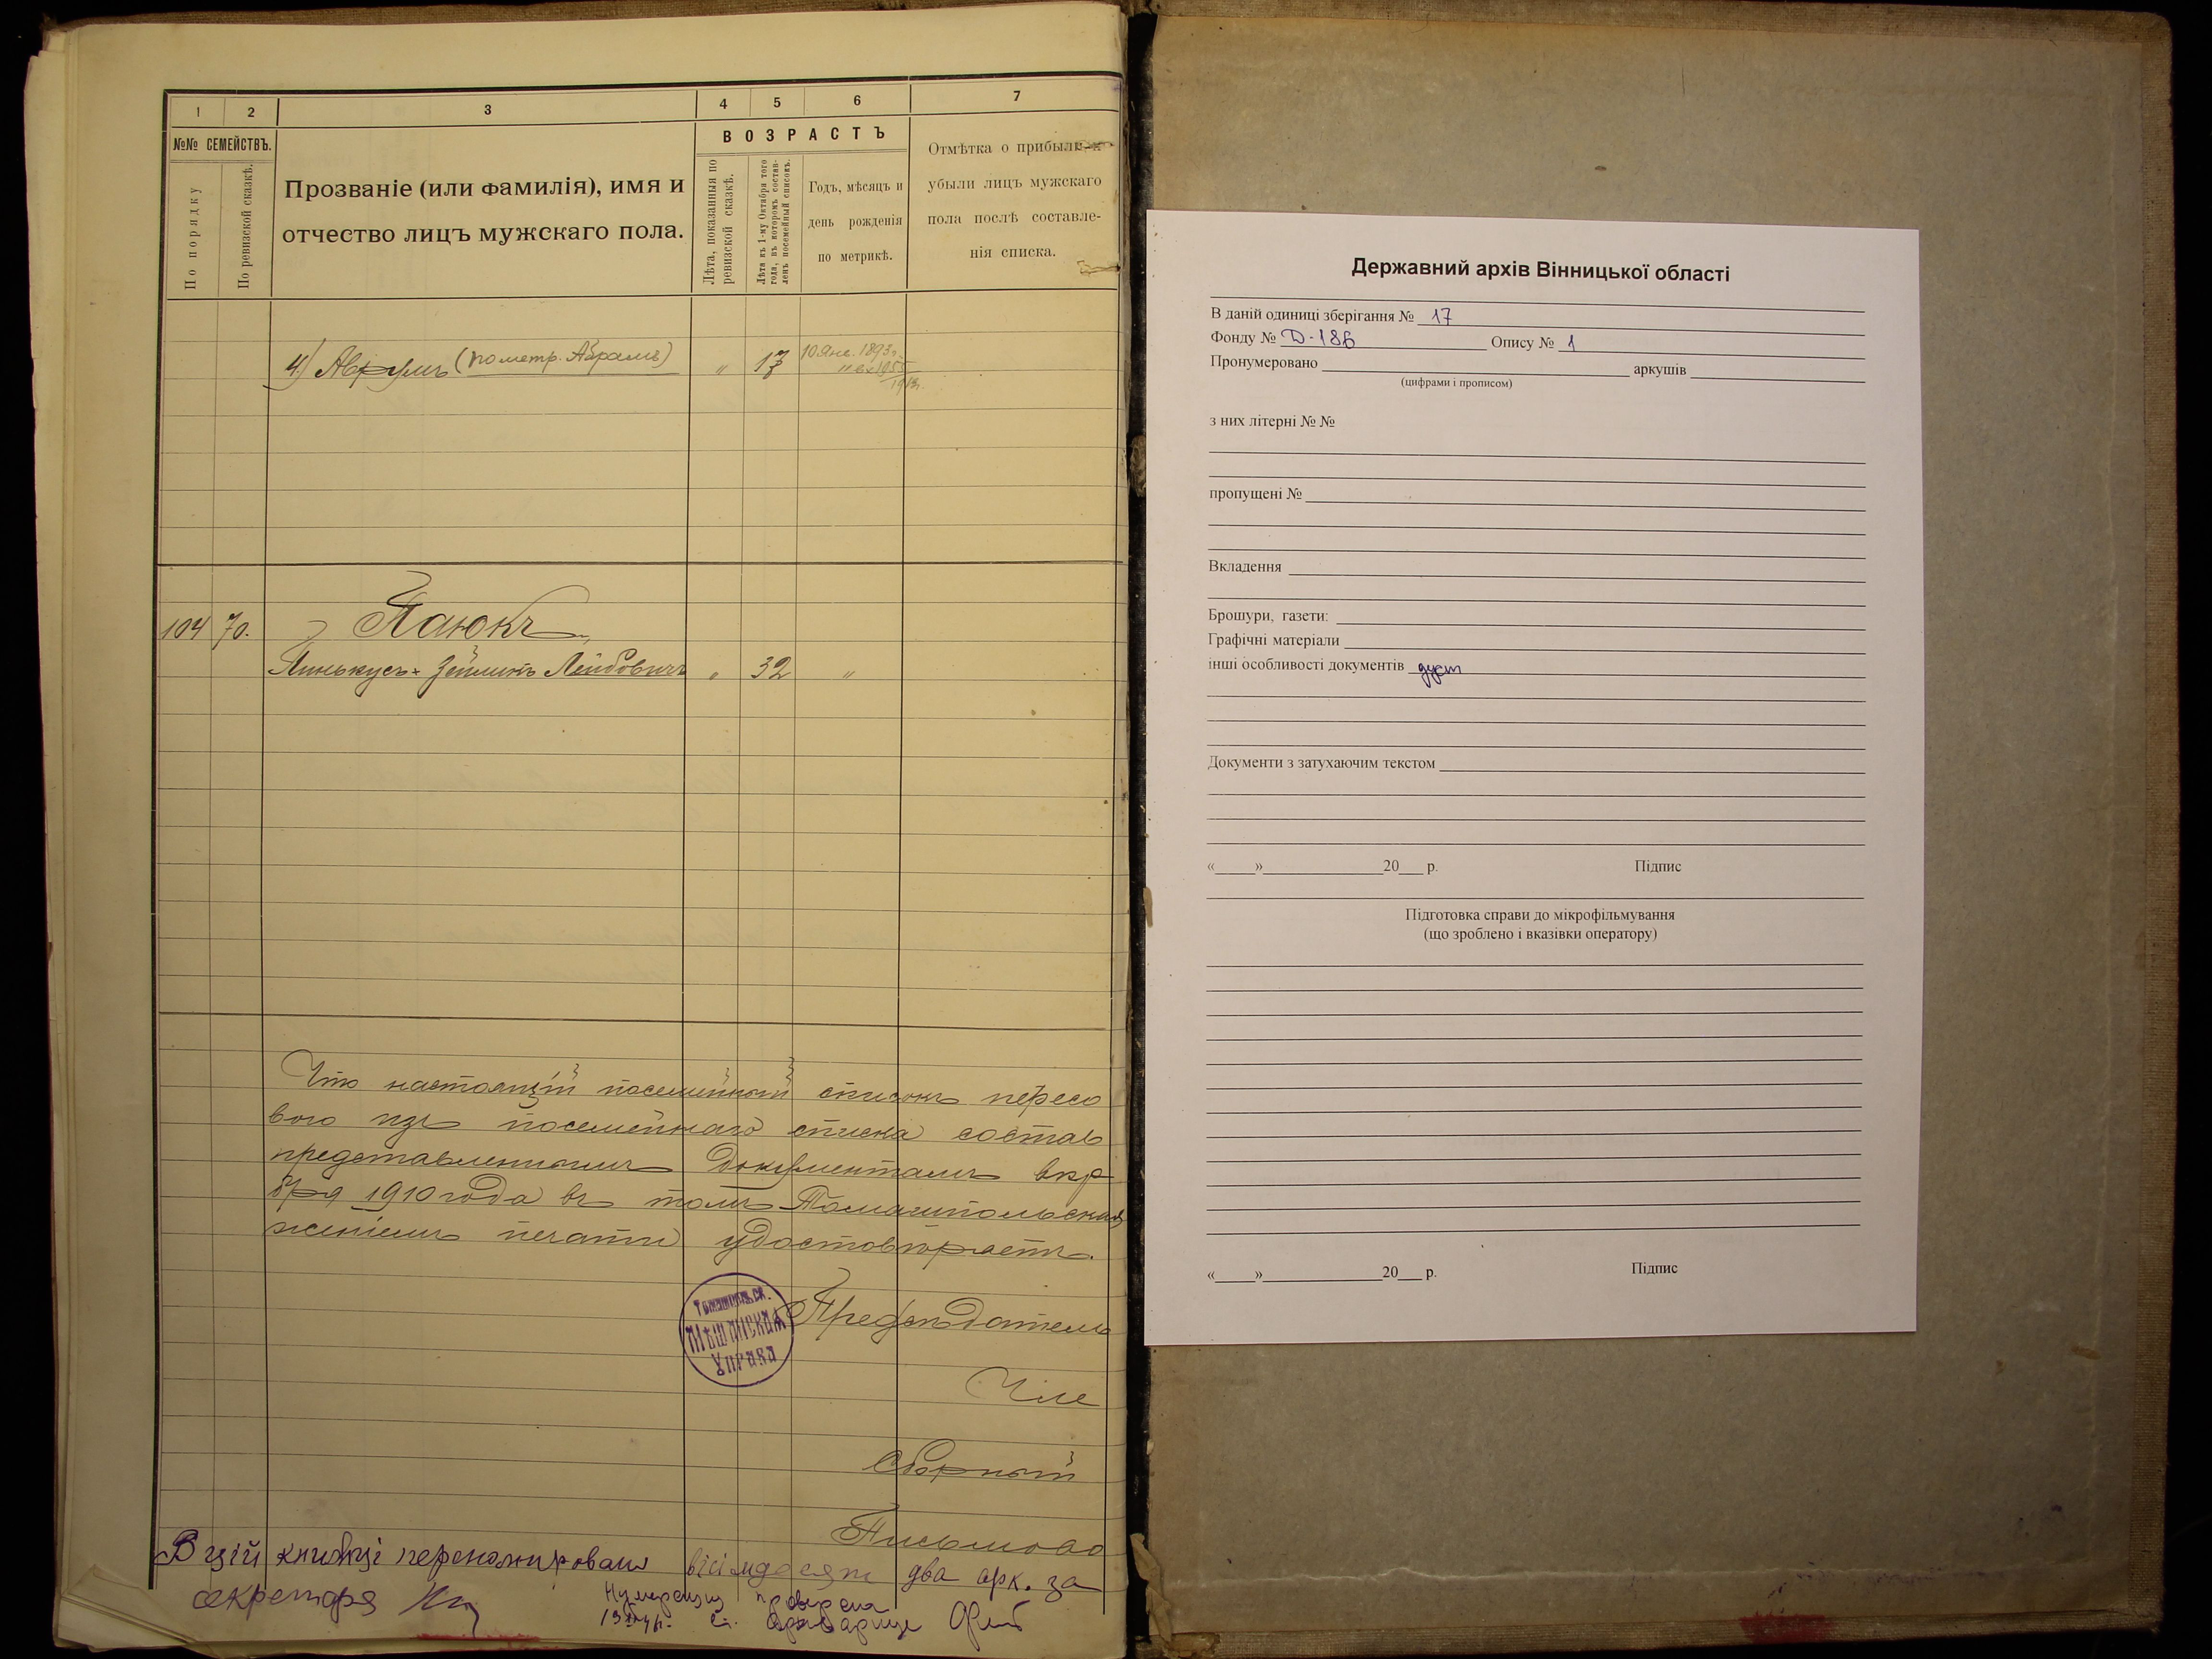 1 2 3 4 5 6 7
№№ СЕМЕЙСТВЪ.
По порядку
По ревизской сказкѣ.
Прозваніе (или фамилія), имя и
отчество лицъ мужскаго пола.
ВОЗРАСТЪ
Лѣта, показанныя по
ревизской сказкѣ.
Лѣта къ 1-му Октября того
года, въ которомъ состав-
ленъ посемейный списокъ.
Годъ, мѣсяцъ и
день рожденія
по метрикѣ.
Отмѣтка о прибыли и
убыли лицъ мужскаго
пола послѣ составле-
нія списка.
4) Аврумъ (по метр. Абрамъ) " 17 10 Янв. 1893 г.
104 70. Паюкъ
Пинькусъ-Зейликъ Лейбовичъ " 32 "
Что настоящій посемейный списокъ пересо
вого изъ посемейнаго списка состав
представленнымъ документамъ
бря 1910 года въ томъ Томашпольская
женіемъ печати удостовѣряетъ.
Томашпольск.
МѢЩАНСКАЯ
Управа
Предсѣдатель
Чле
Сборный
Письмово
В цій книжці перенумеровано вісімдесят два арк. за
секретаря
Нумерация проверена
Державний архів Вінницької області
В даній одиниці зберігання № 17
Фонду № Д-186 Опису № 1
Пронумеровано аркушів
(цифрами і прописом)
з них літерні № №
пропущені №
Вкладення
Брошури, газети:
Графічні матеріали
інші особливості документів дуст
Документи з затухаючим текстом
«_____»_______________20___ р. Підпис
Підготовка справи до мікрофільмування
(що зроблено і вказівки оператору)
«_____»_______________20___ р. Підпис